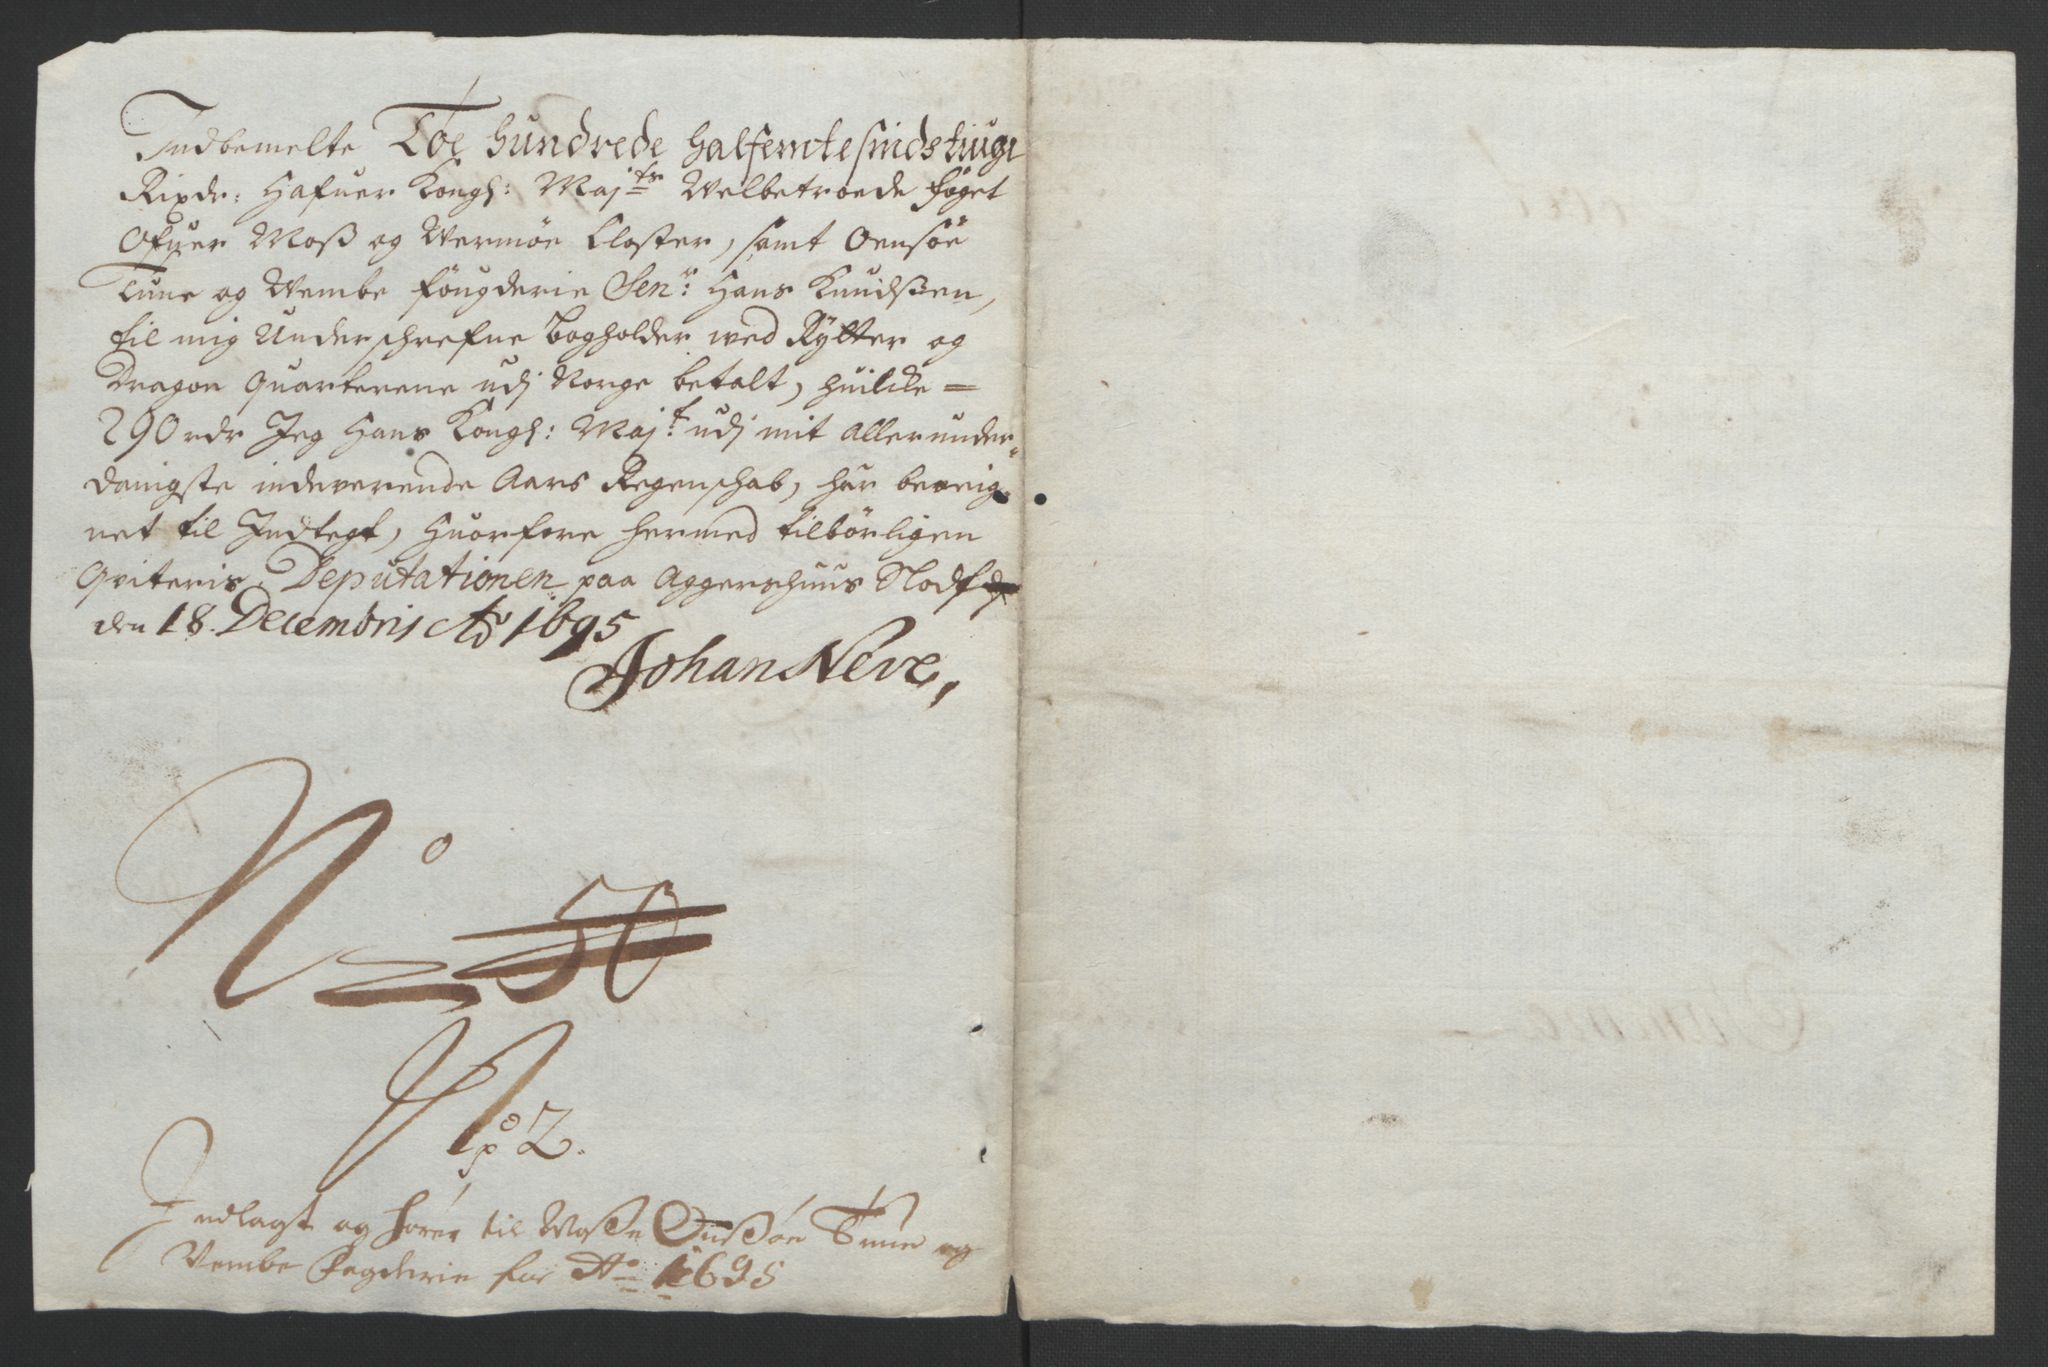 Indbemelte Toe hundrede halfemtesindstiuge
Rixdr: Hafuer Kongl: Maj:ts Velbetroede foget
Ofuer Moß og Vernøe Closter, samt Oensøe
Tune og Vembe fougderie Senr: Hans Knudßen,
til mig Underschrefne bogholder ved Rytter og
Dragon quarterene udj Norge betalt, huilcke =
290 rdr Jeg Hans Kongl: Maj:t udj mit allerunder-
danigste indeverende Aars Regenschab, har bereig-
net til Indtegt, huorfore hermed tilbörligen
Qviteris. Deputationen paa Aggershuus Slot
den 18. Decembris Ao 1695
Johan Neve,
No 50
No 2.
Indlagt og hører til Moße Onßøe Tune og
Vembe fogderie for Ao 1695